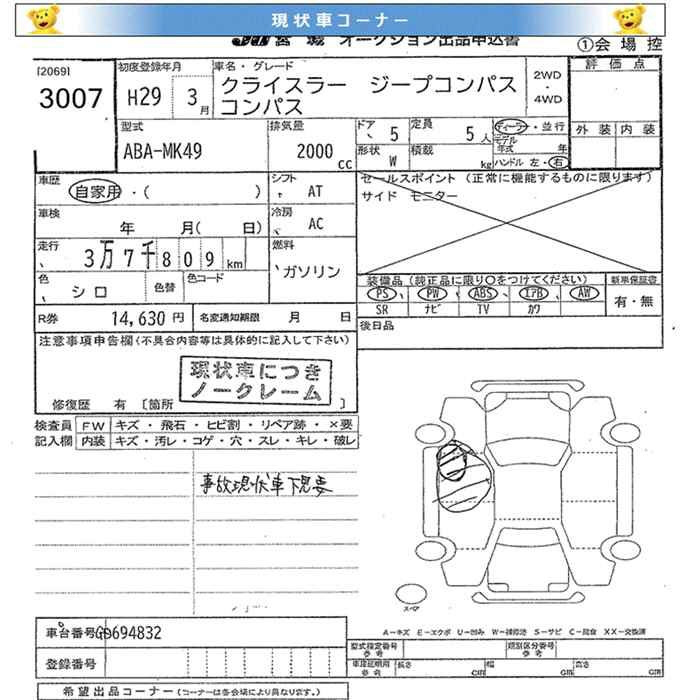 現状車コーナー
JU 宮城 オークション出品申込書
①会場控
[2069]
3007
初度登録年月
H29 3月
車名・グレード
クライスラー ジープコンパス
コンパス
2WD
・
4WD
評価点
外装 内装
型式
ABA-MK49
排気量
2000 cc
ドア 5
定員 5人
ディーラー・並行
形状 W
積載 kg
モデル年式 年
ハンドル 左・右
車歴
自家用・( )
シフト AT
セールスポイント(正常に機能するものに限ります)
サイド モニター
車検
年 月( 日)
冷房 AC
走行
3万7千809km
燃料
ガソリン
色 シロ
色替
色コード
装備品(純正品に限り〇をつけてください)
新車保証書
PS PW ABS エアB AW
有・無
SR ナビ TV カワ
R券 14,630円
名変通知期限 月 日
後日品
注意事項申告欄(不具合内容等は具体的に記入して下さい)
現状車につき
ノークレーム
修復歴 有 [箇所 ]
検査員 FW キズ・飛石・ヒビ割・リペア跡・×要
記入欄 内装 キズ・汚レ・コゲ・穴・スレ・キレ・破レ
事故現状車下見要
スペア
車台番号 GD694832
A-キズ E-エクボ U-凹み W-補修塗 S-サビ C-腐食 XX-交換済
型式指定番号 参考
類別区分番号 参考
登録番号
車検証明用 参考 長さ cm 幅 cm 高さ cm
希望出品コーナー(コーナーは各会場により異なります。)